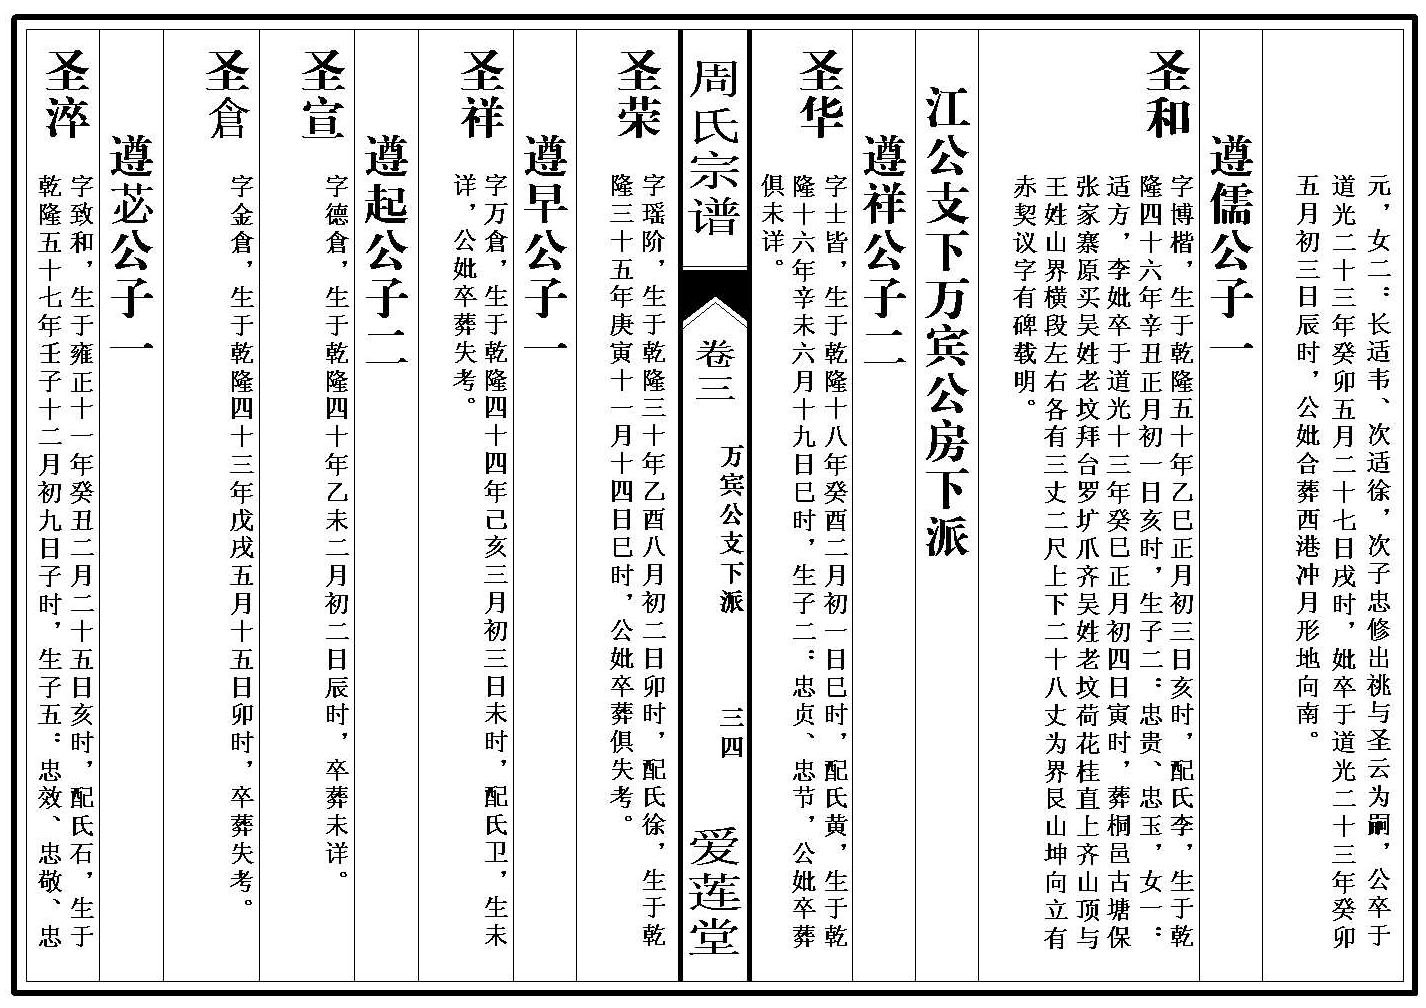 元，女二：长适韦、次适徐，次子忠修出祧与圣云为嗣，公卒于
道光二十三年癸卯五月二十七日戌时，妣卒于道光二十三年癸卯
五月初三日辰时，公妣合葬西港冲月形地向南。
遵儒公子一
圣和
字博楷，生于乾隆五十年乙巳正月初三日亥时，配氏李，生于乾
隆四十六年辛丑正月初一日亥时，生子二：忠贵、忠玉，女一：
适方，李妣卒于道光十三年癸巳正月初四日寅时，葬桐邑古塘保
张家寨原买吴姓老坟拜台罗圹爪齐吴姓老坟荷花桂直上齐山顶与
王姓山界横段左右各有三丈二尺上下二十八丈为界艮山坤向立有
赤契议字有碑载明。
江公支下万宾公房下派
遵祥公子二
圣华
字士皆，生于乾隆十八年癸酉二月初一日巳时，配氏黄，生于乾
隆十六年辛未六月十九日巳时，生子二：忠贞、忠节，公妣卒葬
俱未详。
周氏宗谱
卷三
万宾公支下派
三四
爱莲堂
圣荣
字瑶阶，生于乾隆三十年乙酉八月初二日卯时，配氏徐，生于乾
隆三十五年庚寅十一月十四日巳时，公妣卒葬俱失考。
遵早公子一
圣祥
字万倉，生于乾隆四十四年己亥三月初三日未时，配氏卫，生未
详，公妣卒葬失考。
遵起公子二
圣宣
字德倉，生于乾隆四十年乙未二月初二日辰时，卒葬未详。
圣倉
字金倉，生于乾隆四十三年戊戌五月十五日卯时，卒葬失考。
遵苾公子一
圣淬
字致和，生于雍正十一年癸丑二月二十五日亥时，配氏石，生于
乾隆五十七年壬子十二月初九日子时，生子五：忠效、忠敬、忠